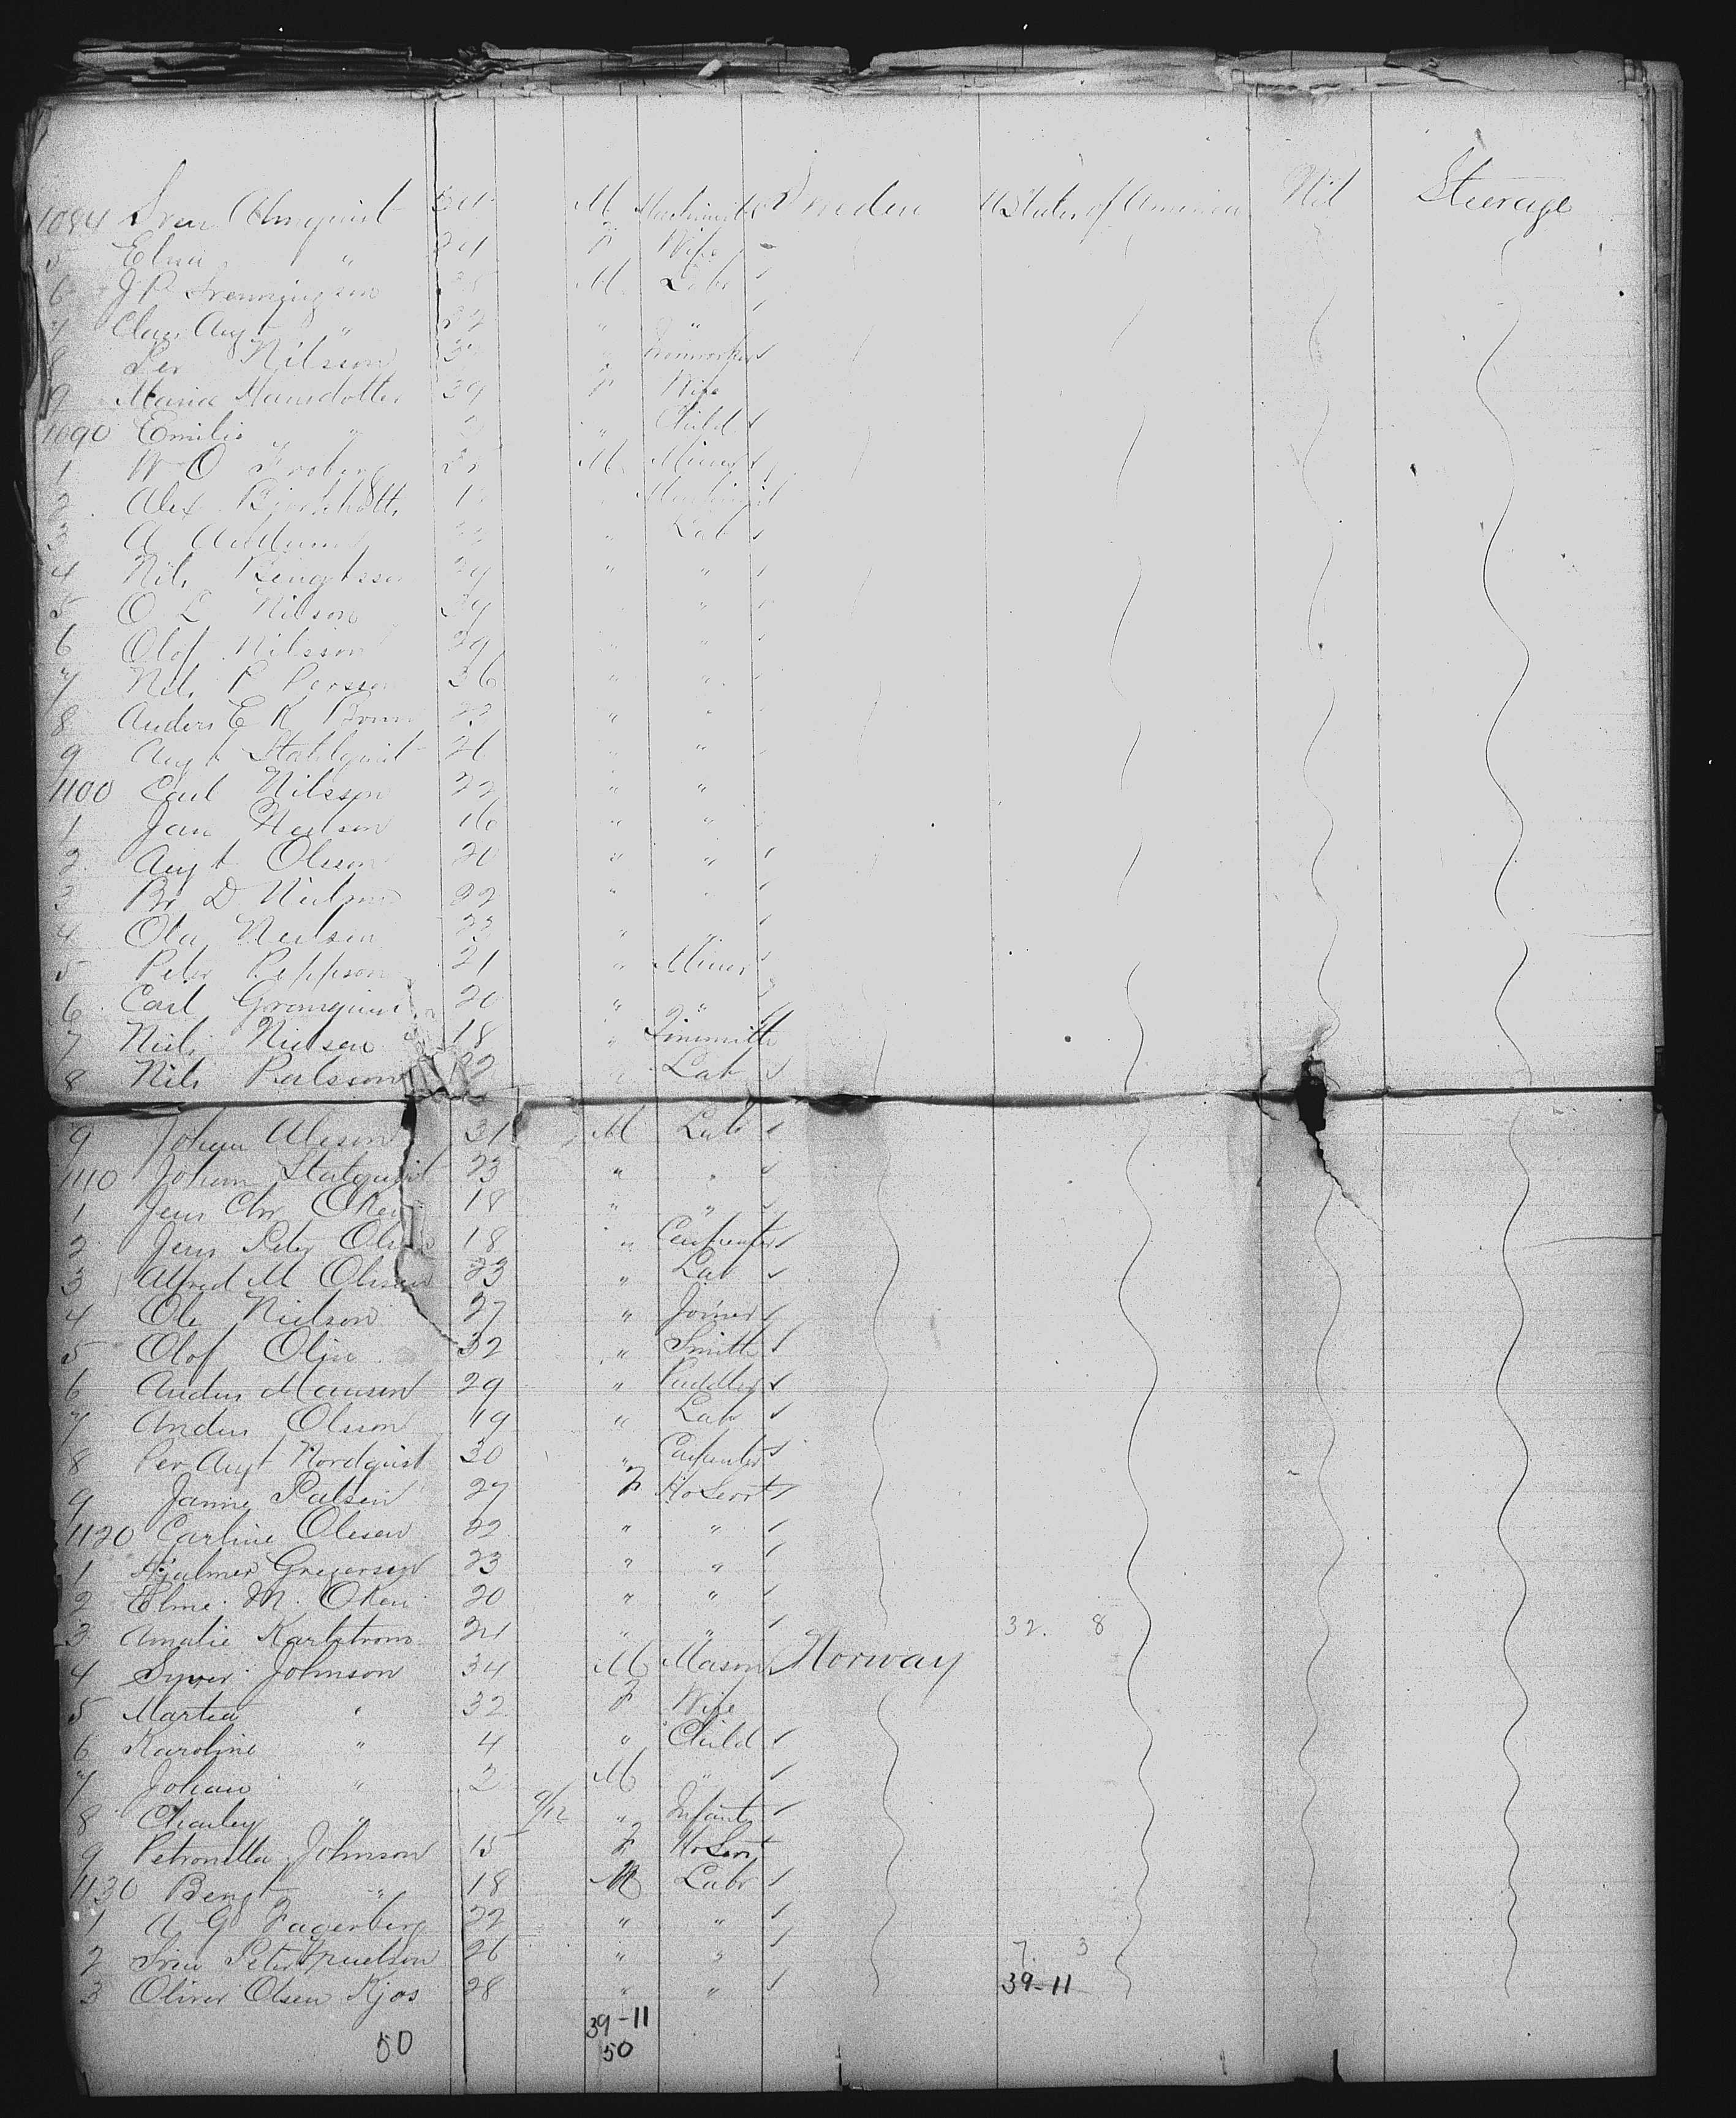 1084 Sven Almquist M Machinist Sweden U States of America Nil Steerage
5 Elna " 24 F Wife
6 J P Svenningsen M Labr
7 Claus Aug " " "
8 Per Nilsson " Ironworker
9 Maria Hansdotter 39 F Wife
1090 Emilie " " Child
1 W O M Miner
2 Alex " Machinist
3 A " Lab
4 Nils Bengtsson 24 " "
5 O L Nilson 39 " "
6 Olof Nilsson 29 " "
7 Nils P Person 36 " "
8 Anders E K " "
9 Augt Stahlquist 26 " "
1100 Carl Nilsson 22 " "
1 Jan 16 " "
2 Augt Olsson 20 " "
3 D 22 " "
4 Ola Neilson 23 " "
5 Peter Peppson 21 " Miner
6 Carl Granquist 20 " "
7 Niels Nielsen 18 " Tinsmith
8 Nils Palsson 22 " Lab
9 Johan 31 M Lab
1110 Johan Stalquist 23 " "
1 Jens Chr 18 " "
2 Jens Peter 18 " Carpenter
3 Alfred M Olsson 23 " Lab
4 Ole Nielson 27 " Joiner
5 Olof Olin 32 " Smith
6 Anders Mansen 29 " Puddler
7 Anders Olsson 19 " Lab
8 Per Augt Nordquist 30 " Carpenter
9 Janne Palsen 27 F Ho Servt
1120 Carline Olesen 22 " "
1 Hjalmer Gregersen 23 " "
2 Elme M. 20 " "
3 Amalie Karlstrom 24 " " 32. 8
4 Syver Johnson 34 M Mason Norway
5 Martea " 32 F Wife
6 Karoline " 4 " Child
7 Johan " 2 M "
8 Charley " 9/12 " Infant
9 Petronella Johnson 15 F Ho Servt
1130 Bengt " 18 M Labr
1 A G Fagerberg 22 " "
2 Sven Peter 26 " " 7. 3
3 Oliver Olsen Kjos 28 " " 39-11
39-11
50 50